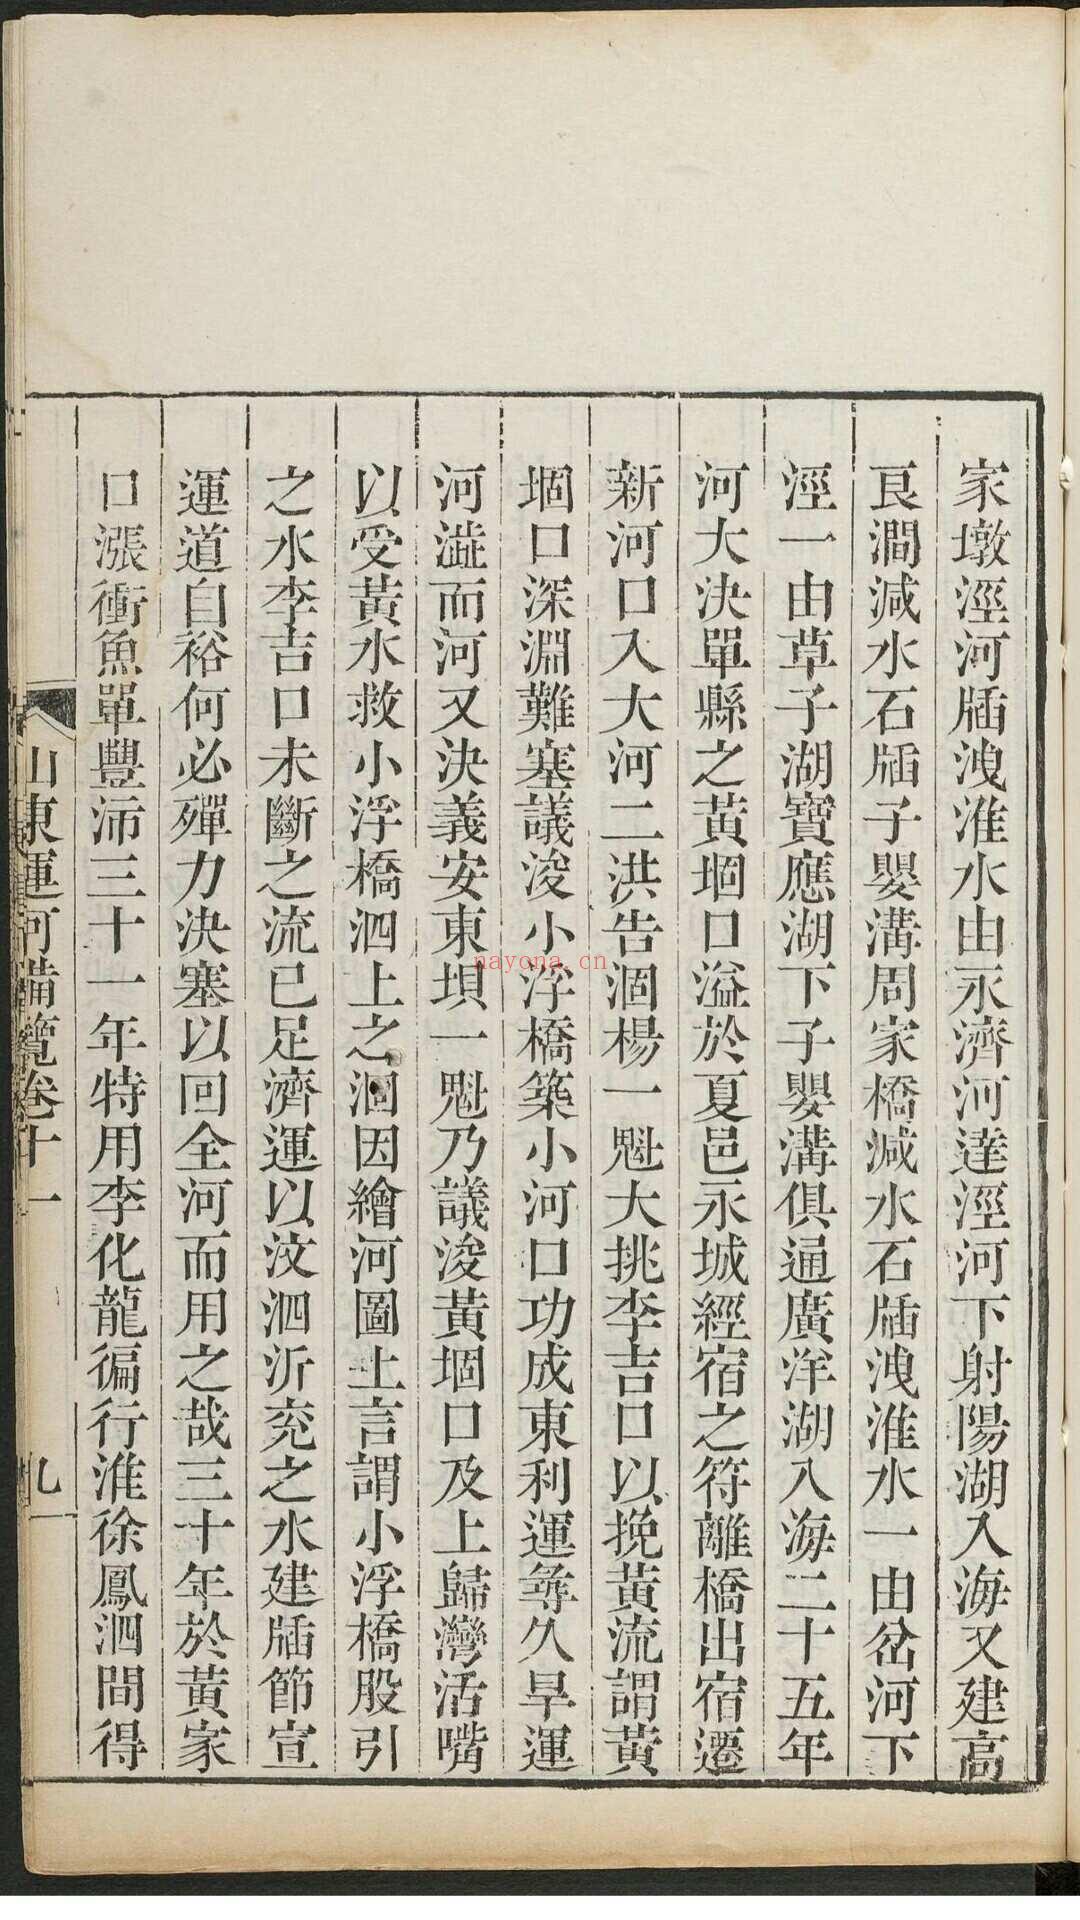 家墩涇河牐洩淮水由永濟河達涇河下射陽湖入海又建高
良澗減水石牐子嬰溝周家橋減水石牐洩淮水一由岔河下
涇一由草子湖寶應湖下子嬰溝俱通廣洋湖入海二十五年
河大決單縣之黃堌口溢於夏邑永城經宿之符離橋出宿遷
新河口入大河二洪告涸楊一魁大挑李吉口以挽黃流謂黃
堌口深淵難塞議浚小浮橋築小河口功成東利運尋久旱運
河澁而河又決義安東壩一魁乃議浚黃堌口及上歸灣活嘴
以受黃水救小浮橋泗上之涸因繪河圖上言謂小浮橋股引
之水李吉口未斷之流已足濟運以汶泗沂兖之水建牐節宣
運道自裕何必殫力決塞以回全河而用之哉三十年於黃家
口漲衝魚單豐沛三十一年特用李化龍徧行淮徐鳳泗間得
山東運河備覽卷十一 九
nayona.cn